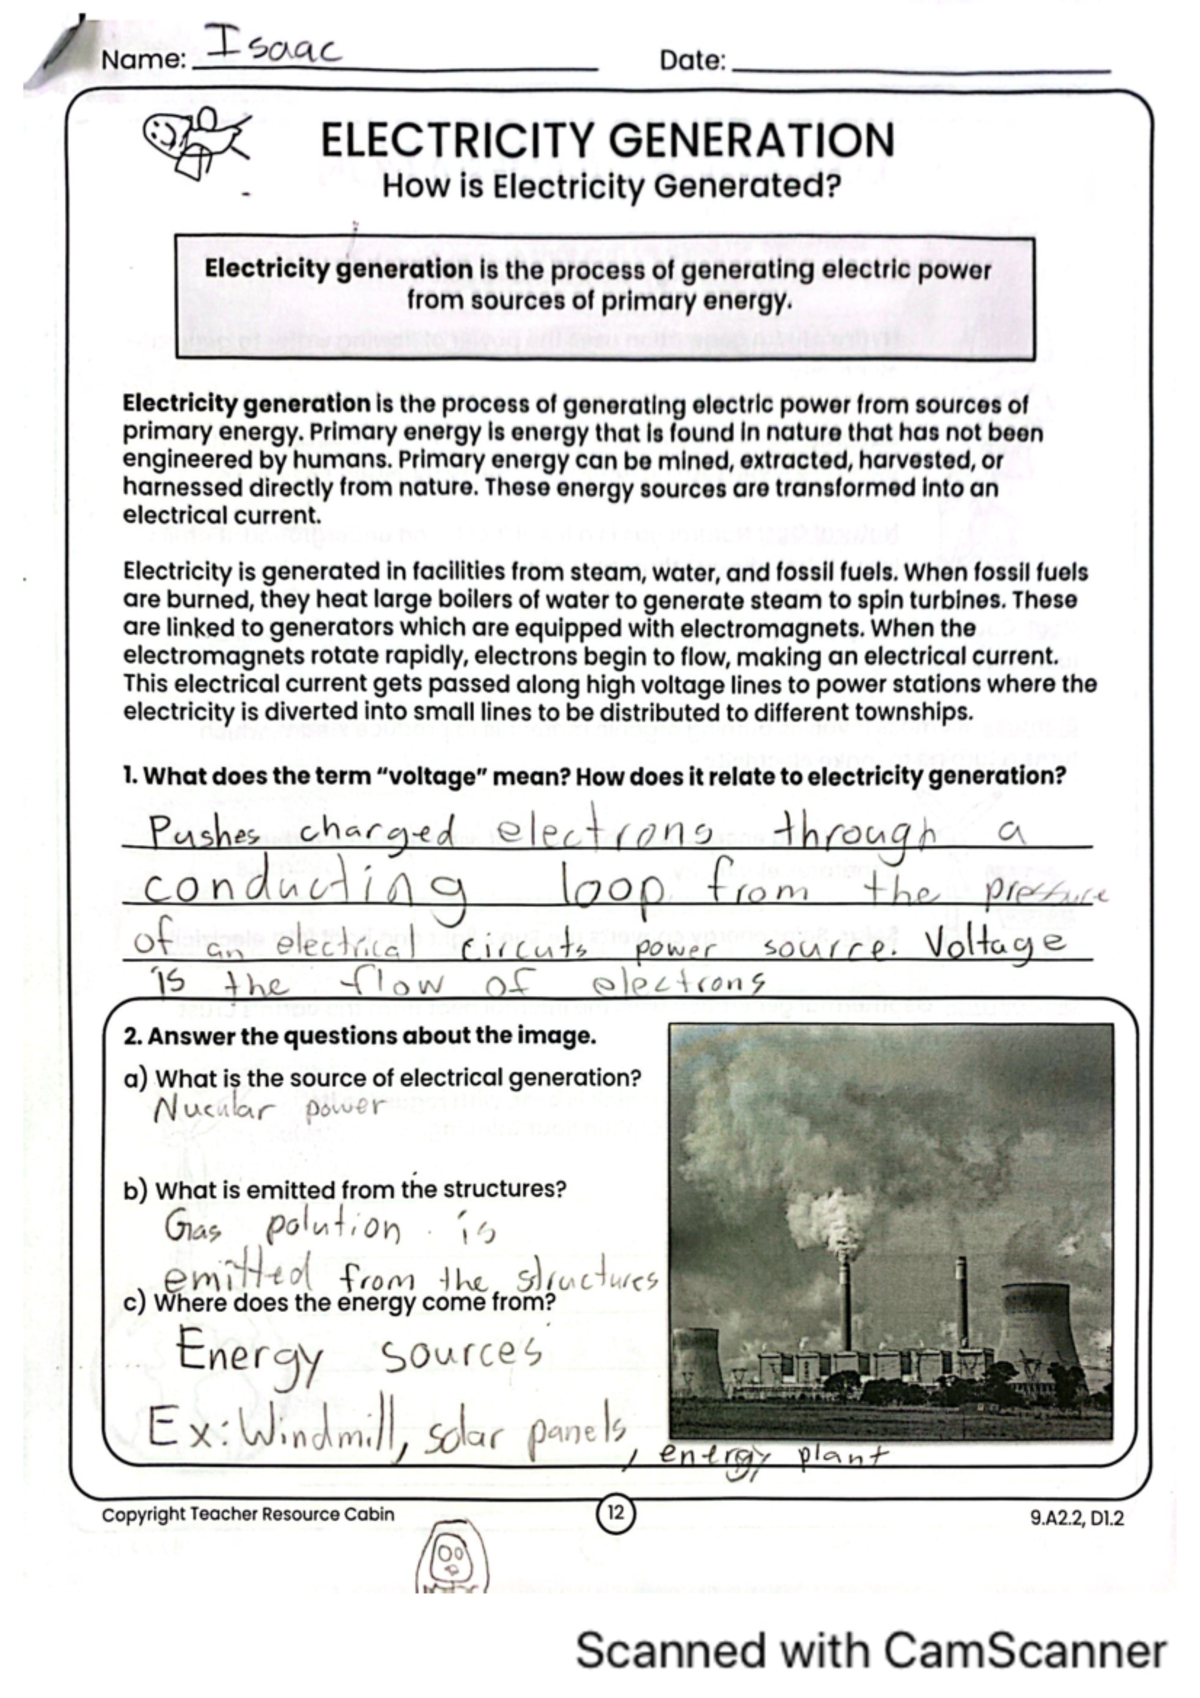 Name: Isaac Date:
ELECTRICITY GENERATION
How is Electricity Generated?
Electricity generation is the process of generating electric power
from sources of primary energy.
Electricity generation is the process of generating electric power from sources of
primary energy. Primary energy is energy that is found in nature that has not been
engineered by humans. Primary energy can be mined, extracted, harvested, or
harnessed directly from nature. These energy sources are transformed into an
electrical current.
Electricity is generated in facilities from steam, water, and fossil fuels. When fossil fuels
are burned, they heat large boilers of water to generate steam to spin turbines. These
are linked to generators which are equipped with electromagnets. When the
electromagnets rotate rapidly, electrons begin to flow, making an electrical current.
This electrical current gets passed along high voltage lines to power stations where the
electricity is diverted into small lines to be distributed to different townships.
1. What does the term “voltage” mean? How does it relate to electricity generation?
Pushes charged electrons through a
conducting loop from the pressure
of an electrical circuts power source. Voltage
is the flow of electrons
2. Answer the questions about the image.
a) What is the source of electrical generation?
Nucular power
b) What is emitted from the structures?
Gas polution is
emitted from the structures
c) Where does the energy come from?
Energy sources
Ex: Windmill, solar panels, energy plant
Copyright Teacher Resource Cabin 12 9.A2.2, D1.2
Scanned with CamScanner